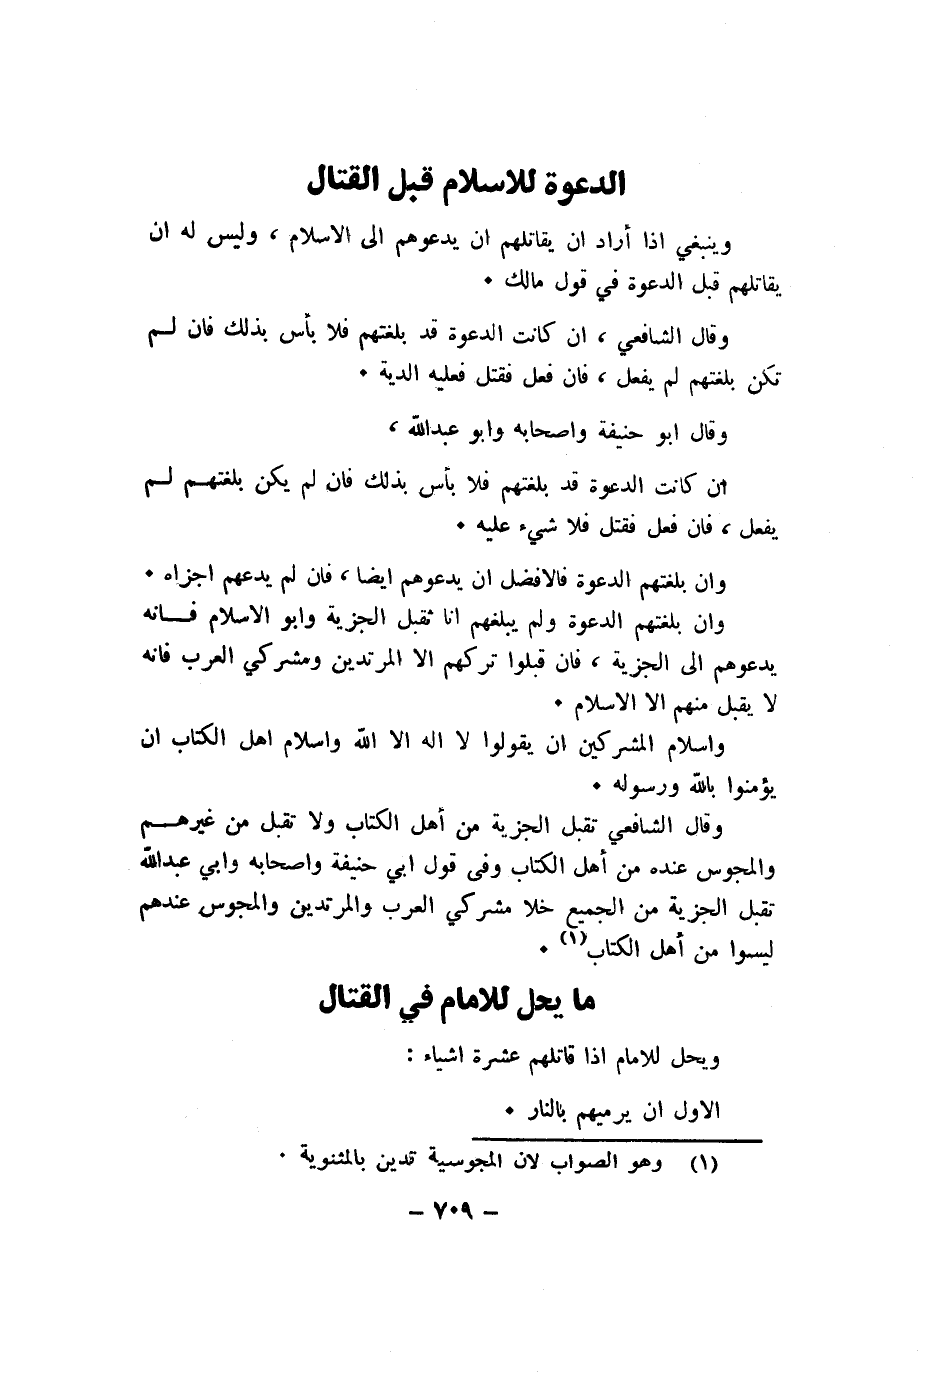 الدعوة للاسلام قبل القتال
وينبغي اذا أراد ان يقاتلهم ان يدعوهم الى الاسلام ، وليس له ان
يقاتلهم قبل الدعوة في قول مالك .
وقال الشافعي ، ان كانت الدعوة قد بلغتهم فلا بأس بذلك فان لم
تكن بلغتهم لم يفعل ، فان فعل فقتل فعليه الدية .
وقال ابو حنيفة واصحابه وابو عبدالله ،
ان كانت الدعوة قد بلغتهم فلا بأس بذلك فان لم يكن بلغتهم لم
يفعل ، فان فعل فقتل فلا شيء عليه .
وان بلغتهم الدعوة فالافضل ان يدعوهم ايضا ، فان لم يدعهم اجزاه .
وان بلغتهم الدعوة ولم يبلغهم انا نقبل الجزية وابو الاسلام فانه
يدعوهم الى الجزية ، فان قبلوا تركهم الا المرتدين ومشركي العرب فانه
لا يقبل منهم الا الاسلام .
واسلام المشركين ان يقولوا لا اله الا الله واسلام اهل الكتاب ان
يؤمنوا بالله ورسوله .
وقال الشافعي تقبل الجزية من أهل الكتاب ولا تقبل من غيرهم
والمجوس عنده من أهل الكتاب وفى قول ابي حنيفة واصحابه وابي عبدالله
تقبل الجزية من الجميع خلا مشركي العرب والمرتدين والمجوس عندهم
ليسوا من أهل الكتاب(١) .
ما يحل للامام في القتال
ويحل للامام اذا قاتلهم عشرة اشياء :
الاول ان يرميهم بالنار .
(١) وهو الصواب لان المجوسية تدين بالمثنوية .
– ٧٠٩ –